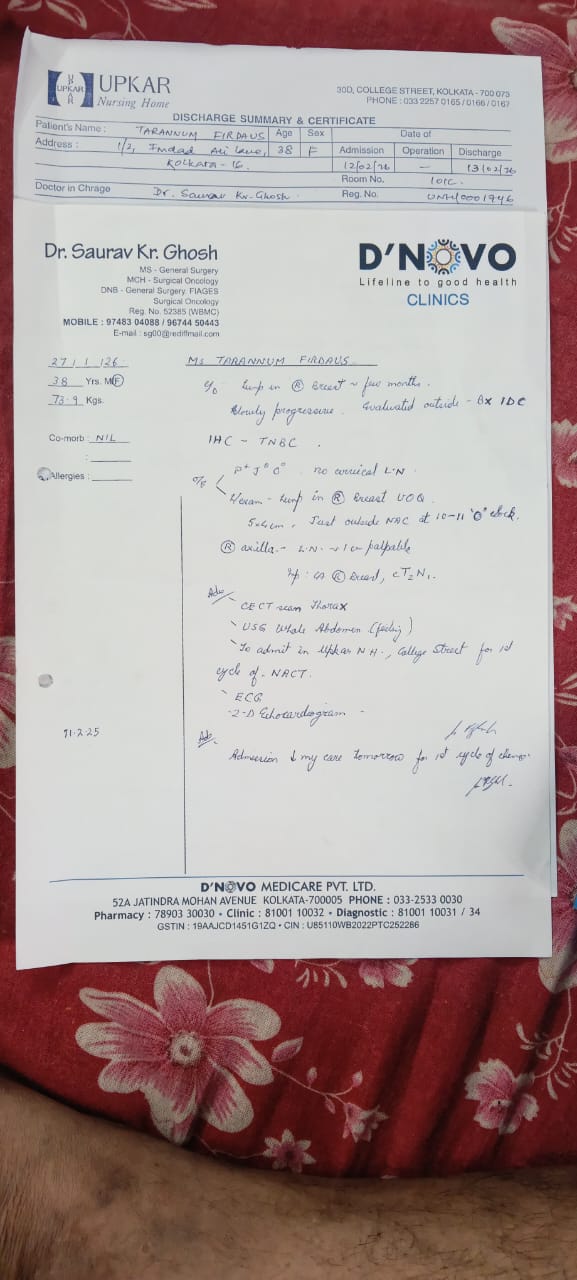 UPKAR
UPKAR
Nursing Home
30D, COLLEGE STREET, KOLKATA - 700 073
PHONE : 033 2257 0165 / 0166 / 0167
DISCHARGE SUMMARY & CERTIFICATE
Patient's Name : TARANNUM FIRDAUS Age Sex Date of
Address : 1/2, Imdad Ali Lane, 38 F Admission Operation Discharge
Kolkata - 16. 12/02/26 — 13/02/26
Room No. 101C.
Doctor in Chrage Dr. Saurav Kr. Ghosh. Reg. No. UNH/0001946
Dr. Saurav Kr. Ghosh
MS - General Surgery
MCH - Surgical Oncology
DNB - General Surgery. FIAGES
Surgical Oncology
Reg. No. 52385 (WBMC)
MOBILE : 97483 04088 / 96744 50443
E-mail : sg00@rediffmail.com
D'NOVO
Lifeline to good health
CLINICS
27/1/26
38 Yrs. M/F
73.9 Kgs.
Co-morb : NIL
:
Allergies :
Ms TARANNUM FIRDAUS
c/o Lump in (R) Breast ~ few months.
Slowly progressive. Evaluated outside - Bx IDC
IHC - TNBC.
o/e P+ J° C° no cervical L.N
L/exam - Lump in (R) Breast UOQ
5x4cm, Just outside NAC at 10-11 'O' clock.
(R) axilla - L.N. ~1cm palpable
(R) Breast, cT2N1.
Adv
CECT scan Thorax
USG Whole Abdomen
To admit in Upkar N.H., College Street for 1st
cycle of NACT.
ECG
2-D Echocardiogram
11.2.25
Adv.
Admission my care tomorrow for 1st cycle of chemo.
D'NOVO MEDICARE PVT. LTD.
52A JATINDRA MOHAN AVENUE KOLKATA-700005 PHONE : 033-2533 0030
Pharmacy : 78903 30030 • Clinic : 81001 10032 • Diagnostic : 81001 10031 / 34
GSTIN : 19AAJCD1451G1ZQ • CIN : U85110WB2022PTC252286